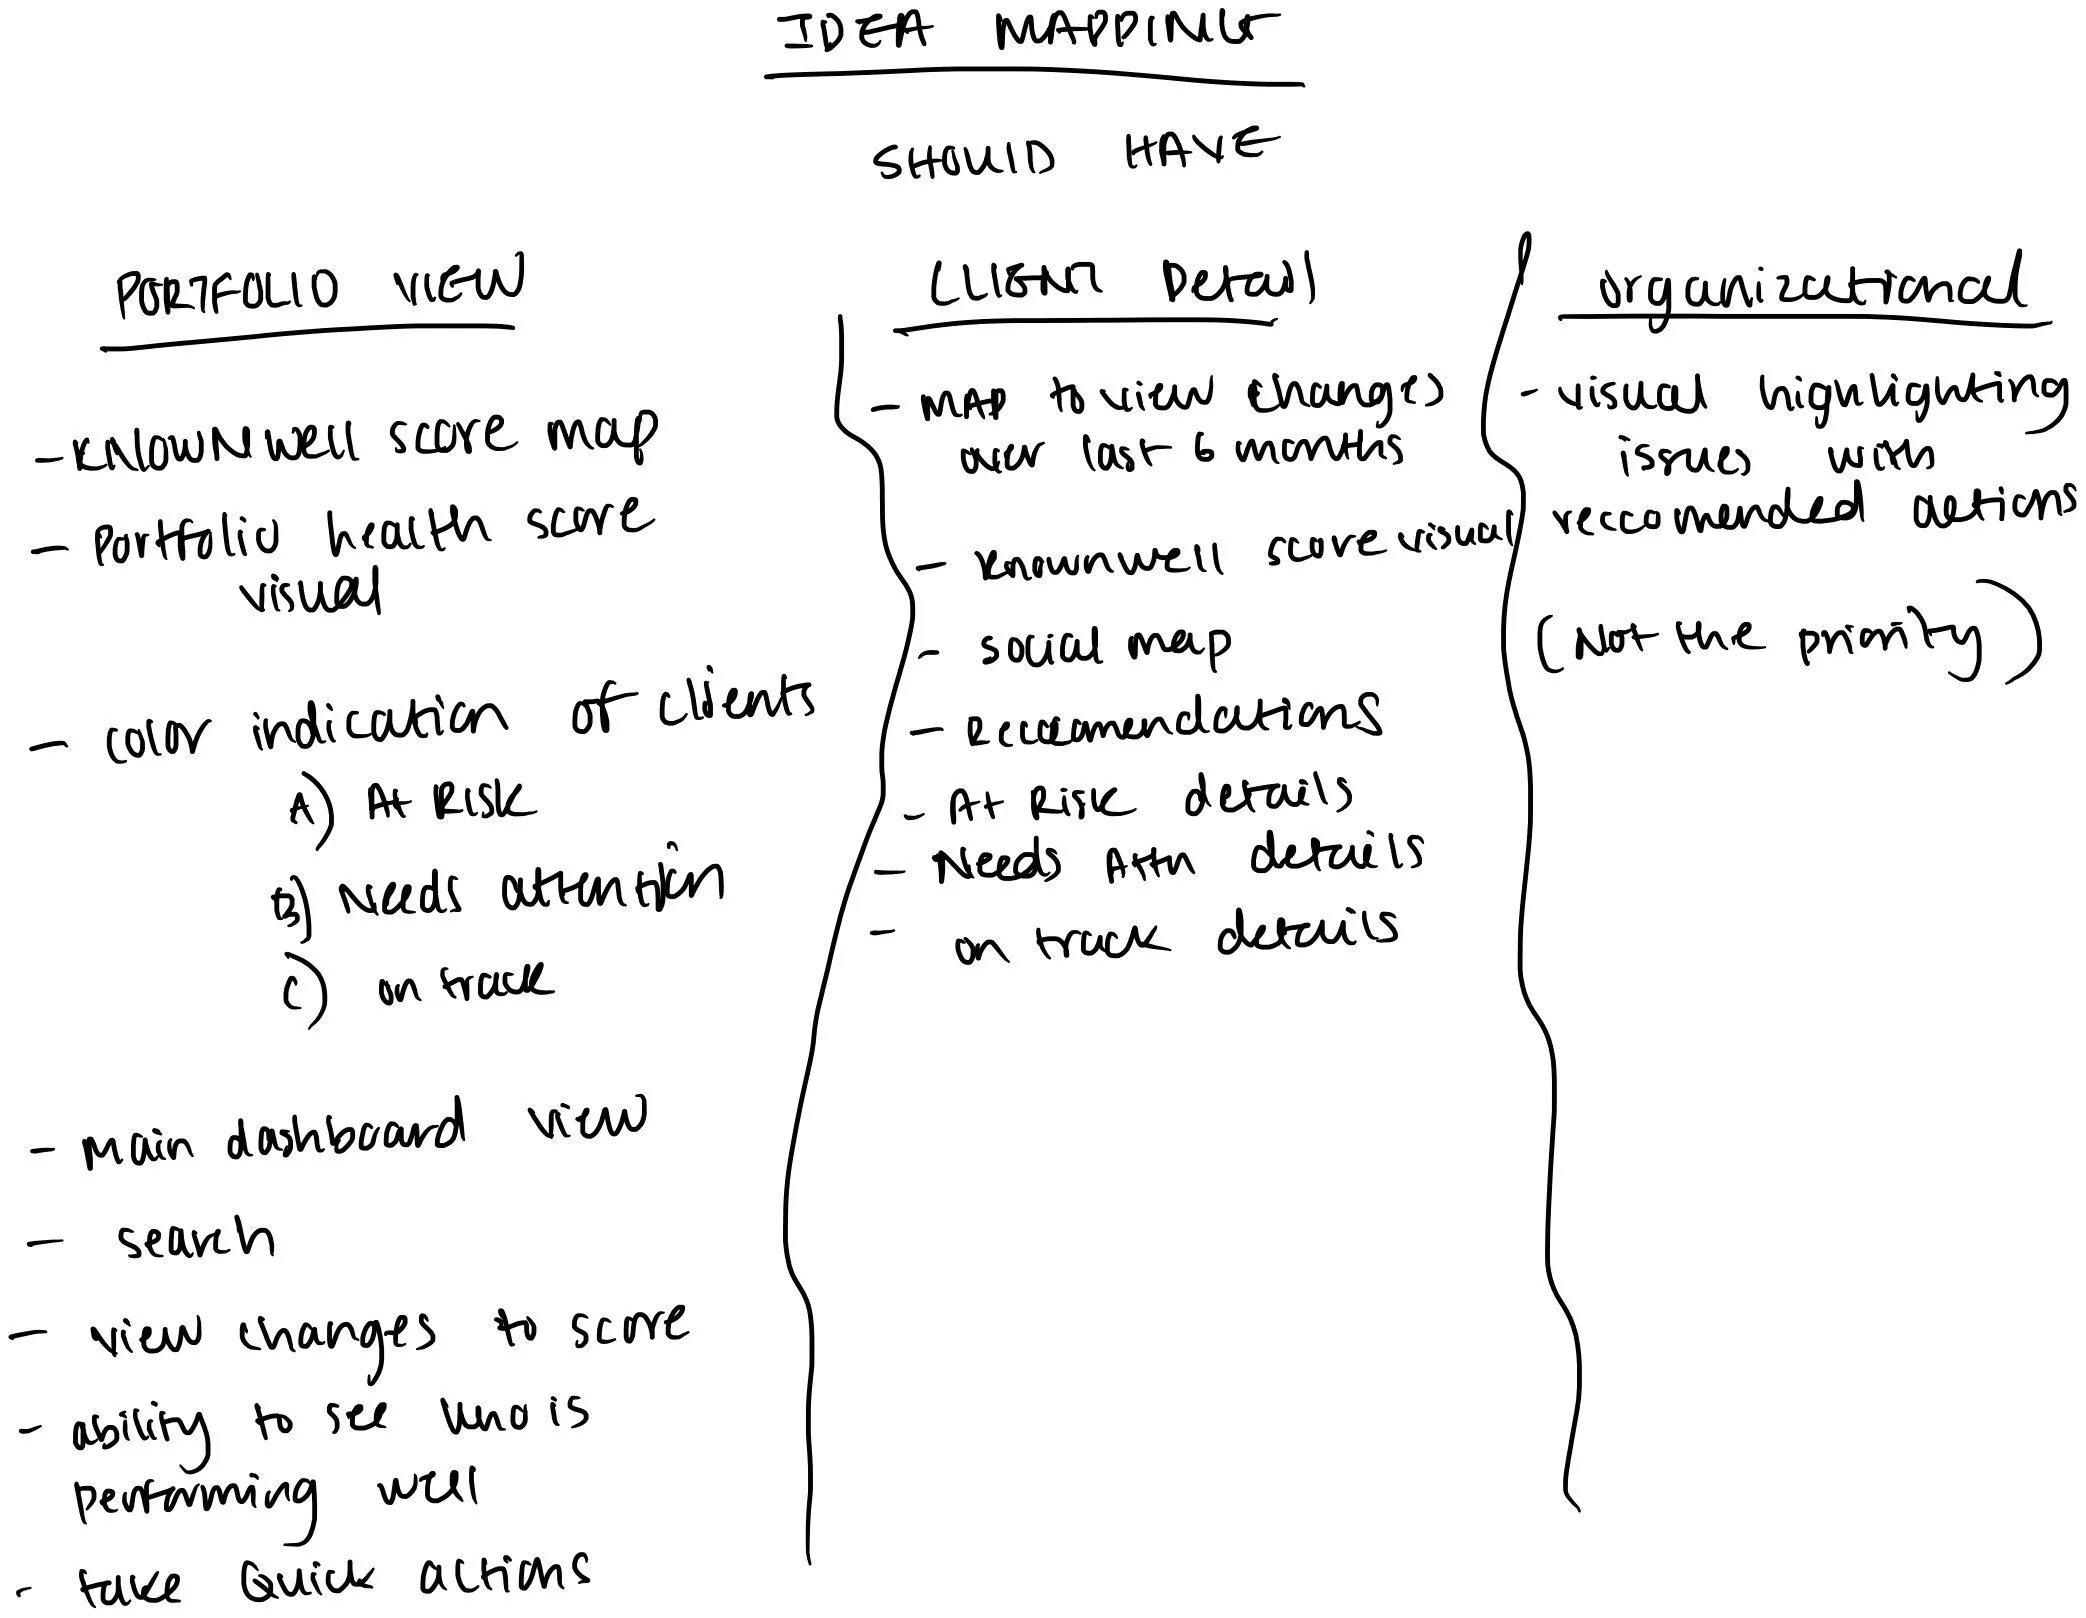 IDEA MAPPING
SHOULD HAVE
PORTFOLIO VIEW
- KNOWNWELL score map
- Portfolio health score
visual
- color indication of clients
A) At RISK
B) Needs attention
C) on track
- main dashboard view
- search
- view changes to score
- ability to see who is
performing well
- take Quick actions
CLIENT Detail
- MAP to view changes
over last 6 months
- knownwell score visual
- social map
- Reccomendations
- At Risk details
- Needs Attn details
- on track details
organizational
- visual highlighting
issues with
reccomended actions
(Not the priority)